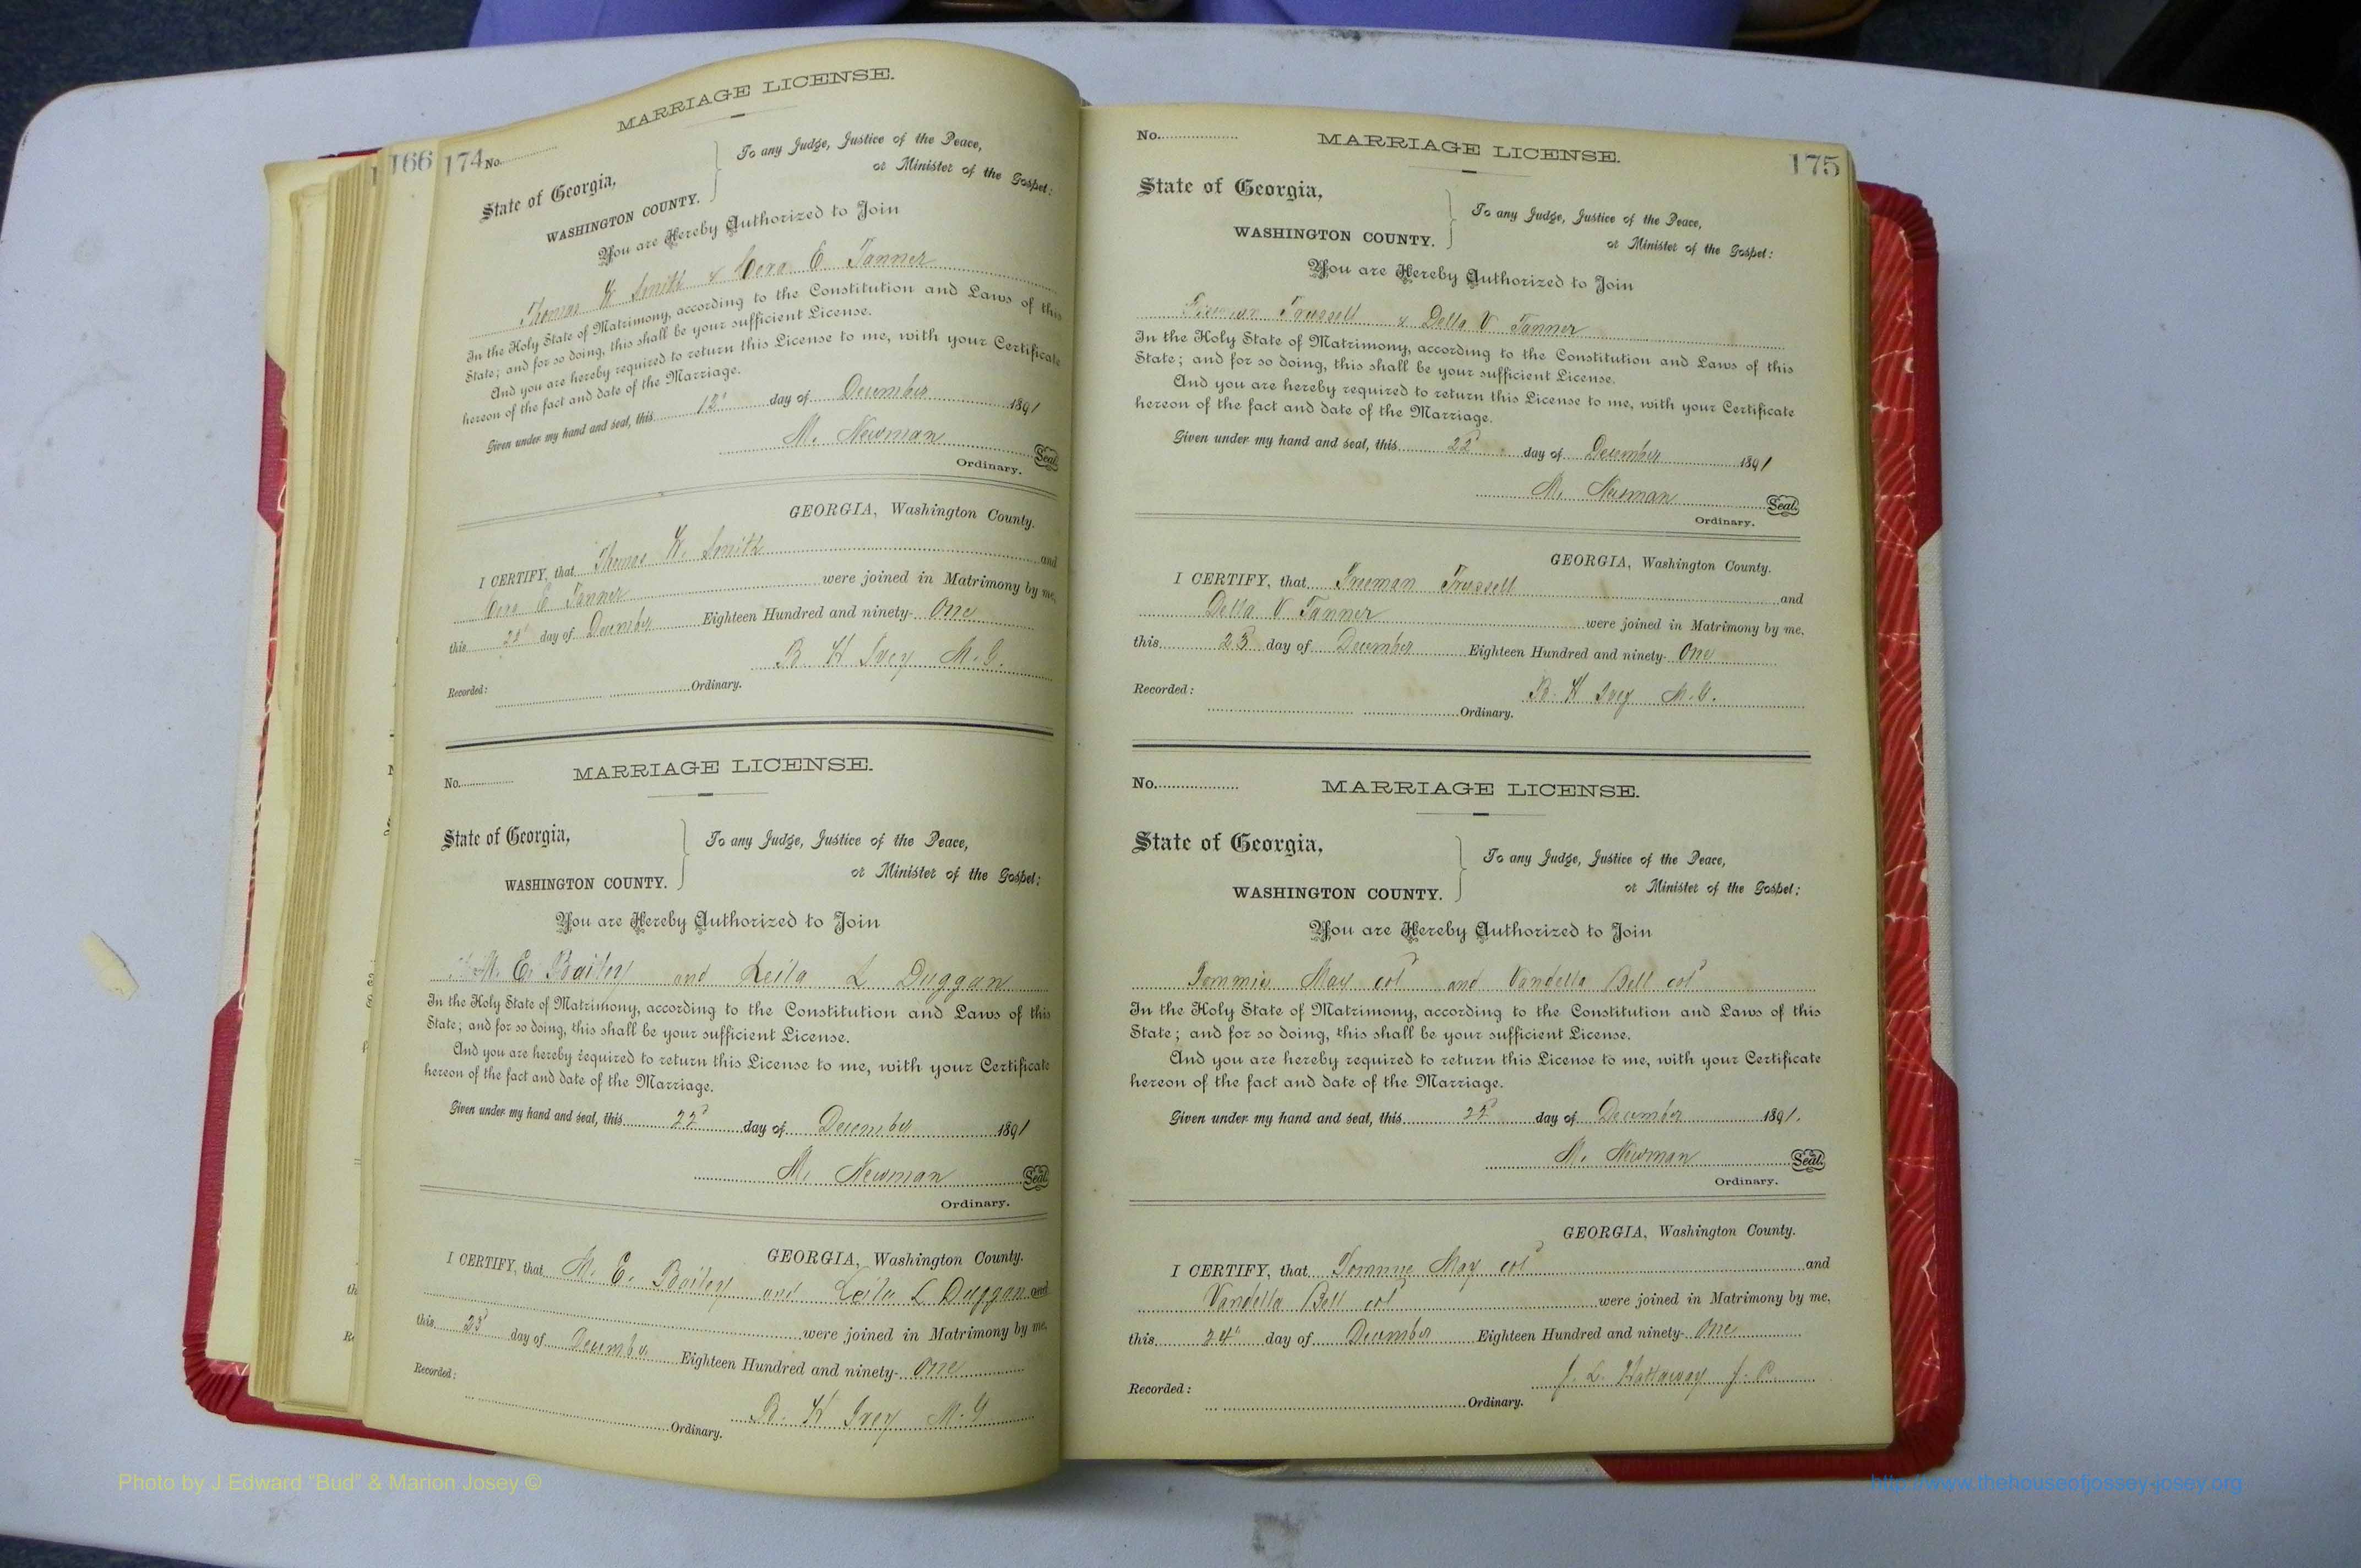 166 174
MARRIAGE LICENSE.
No.
State of Georgia,
WASHINGTON COUNTY.
To any Judge, Justice of the Peace,
or Minister of the Gospel:
You are Hereby Authorized to Join
Thomas W Smith & Cora E Tanner
In the Holy State of Matrimony, according to the Constitution and Laws of this
State; and for so doing, this shall be your sufficient License.
And you are hereby required to return this License to me, with your Certificate
hereon of the fact and date of the Marriage.
Given under my hand and seal, this 12' day of December 1891
M. Newman Seal.
Ordinary.
GEORGIA, Washington County.
I CERTIFY, that Thomas W. Smith and
Cora E Tanner were joined in Matrimony by me,
this 22d day of December Eighteen Hundred and ninety- One
B H Ivey M.G.
Recorded: Ordinary.
No. MARRIAGE LICENSE.
State of Georgia,
WASHINGTON COUNTY.
To any Judge, Justice of the Peace,
or Minister of the Gospel:
You are Hereby Authorized to Join
M. E. Bailey and Leila L Duggan
In the Holy State of Matrimony, according to the Constitution and Laws of this
State; and for so doing, this shall be your sufficient License.
And you are hereby required to return this License to me, with your Certificate
hereon of the fact and date of the Marriage.
Given under my hand and seal, this 22d day of December 1891
M. Newman Seal.
Ordinary.
GEORGIA, Washington County.
I CERTIFY, that M. E. Bailey and Leila L Duggan and
were joined in Matrimony by me,
this 23d day of December Eighteen Hundred and ninety- One
B. H Ivey M.G
Recorded: Ordinary.
175
No. MARRIAGE LICENSE.
State of Georgia,
WASHINGTON COUNTY.
To any Judge, Justice of the Peace,
or Minister of the Gospel:
You are Hereby Authorized to Join
Freeman Trussell & Della V Tanner
In the Holy State of Matrimony, according to the Constitution and Laws of this
State; and for so doing, this shall be your sufficient License.
And you are hereby required to return this License to me, with your Certificate
hereon of the fact and date of the Marriage.
Given under my hand and seal, this 22d day of December 1891
M. Newman Seal.
Ordinary.
GEORGIA, Washington County.
I CERTIFY, that Freeman Trussell and
Della V Tanner were joined in Matrimony by me,
this 23 day of December Eighteen Hundred and ninety- One
B. H Ivey M.G.
Recorded: Ordinary.
No. MARRIAGE LICENSE.
State of Georgia,
WASHINGTON COUNTY.
To any Judge, Justice of the Peace,
or Minister of the Gospel:
You are Hereby Authorized to Join
Tommie May cold and Vandella Bell cold
In the Holy State of Matrimony, according to the Constitution and Laws of this
State; and for so doing, this shall be your sufficient License.
And you are hereby required to return this License to me, with your Certificate
hereon of the fact and date of the Marriage.
Given under my hand and seal, this 22d day of December 1891.
M. Newman Seal.
Ordinary.
GEORGIA, Washington County.
I CERTIFY, that Tommie May cold and
Vandella Bell cold were joined in Matrimony by me,
this 24' day of December Eighteen Hundred and ninety- One
J. L. Hattaway J. P.
Recorded: Ordinary.
Photo by J Edward "Bud" & Marion Josey ©
http://www.thehouseofjossey-josey.org